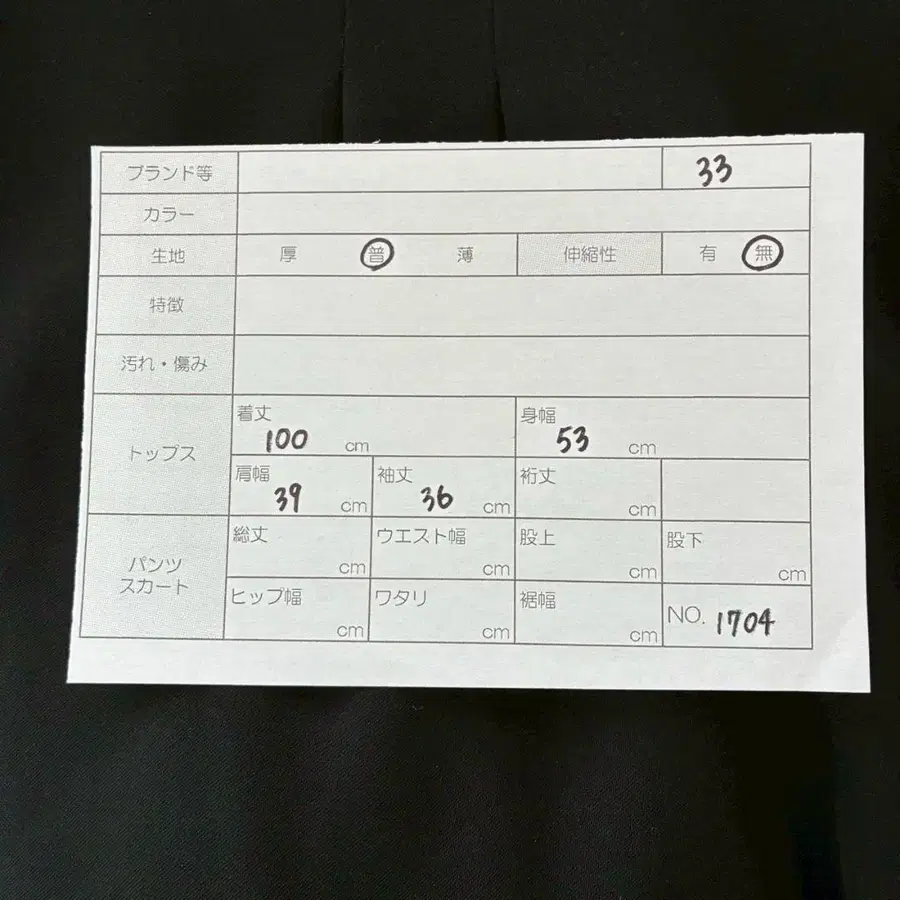 ブランド等 33
カラー
生地 厚 普 薄 伸縮性 有 無
特徴
汚れ・傷み
トップス
着丈 100 cm 身幅 53 cm
肩幅 39 cm 袖丈 36 cm 裄丈 cm
パンツ
スカート
総丈 cm ウエスト幅 cm 股上 cm 股下 cm
ヒップ幅 cm ワタリ cm 裾幅 cm NO. 1704